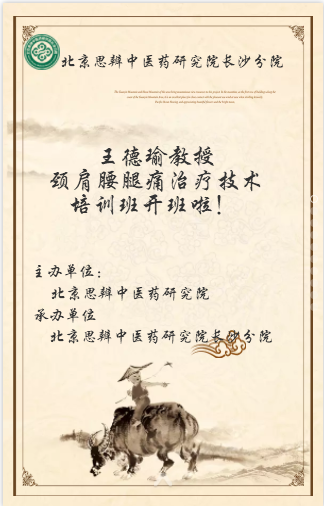 北京思辩中医药研究院长沙分院
王德瑜教授
颈肩腰腿痛治疗技术
培训班开班啦!
主办单位:
北京思辩中医药研究院
承办单位
北京思辩中医药研究院长沙分院